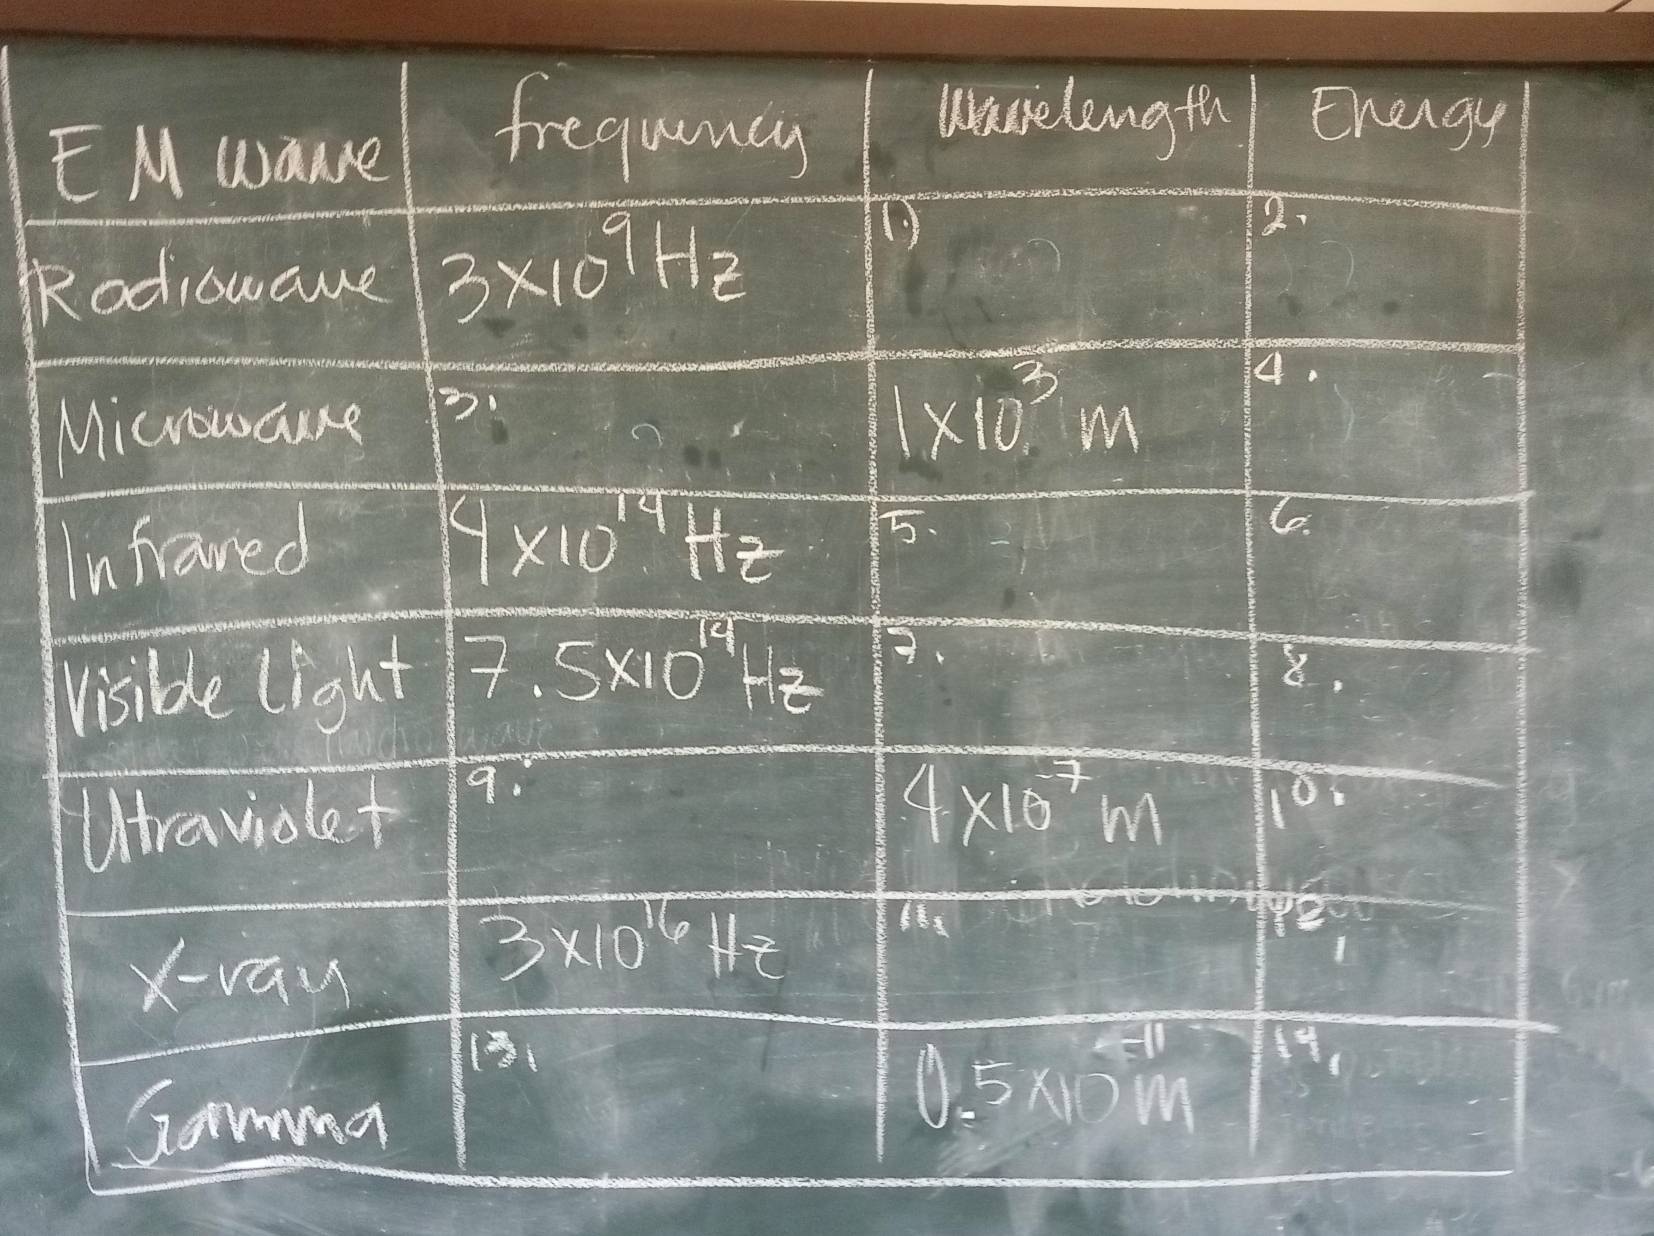 EM wave frequency wavelength Energy
Radiowave 3x10⁹ Hz 1) 2.
Microwave 3. 1x10³ m 4.
Infrared 4x10¹⁴ Hz 5. 6.
Visible light 7.5x10¹⁴ Hz 7. 8.
Utraviolet 9. 4x10⁻⁷ m 10.
X-ray 3x10¹⁶ Hz 11. 12.
Gamma 13. 0.5x10⁻¹¹ m 14.